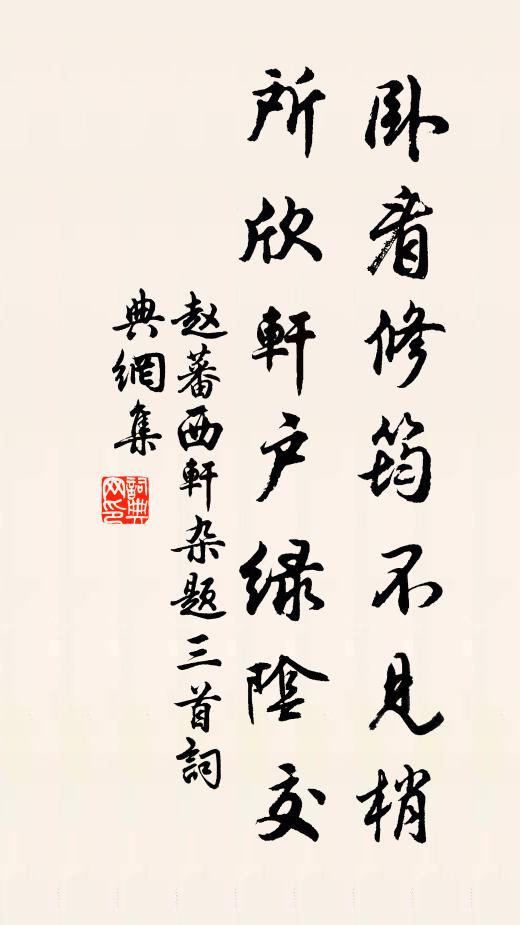 卧看修筠不见梢
所欣軒户緑陰交
赵蕃西軒杂题三首詞
典網集
詞典
网印